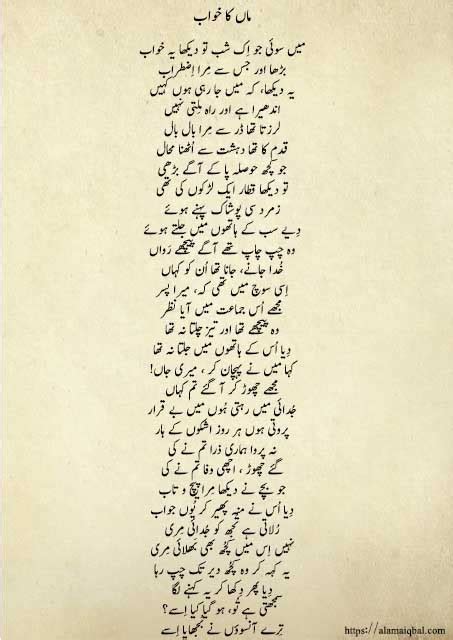 ماں کا خواب
میں سوئی جو اِک شب تو دیکھا یہ خواب
بڑھا اور جس سے مِرا اِضطراب
یہ دیکھا، کہ میں جا رہی ہوں کہیں
اندھیرا ہے اور راہ مِلتی نہیں
لرزتا تھا ڈر سے مِرا بال بال
قدم کا تھا دہشت سے اُٹھنا محال
جو کچھ حوصلہ پا کے آگے بڑھی
تو دیکھا قطار ایک لڑکوں کی تھی
زمرد سی پوشاک پہنے ہوئے
دِیے سب کے ہاتھوں میں جلتے ہوئے
وہ چپ چاپ تھے آگے پیچھے رواں
خُدا جانے، جانا تھا اُن کو کہاں
اِسی سوچ میں تھی کہ، میرا پسر
مجھے اُس جماعت میں آیا نظر
وہ پیچھے تھا اور تیز چلتا نہ تھا
دِیا اُس کے ہاتھوں میں جلتا نہ تھا
کہا میں نے پہچان کر، میری جاں!
مجھے چھوڑ کر آ گئے تم کہاں
جُدائی میں رہتی ہُوں میں بے قرار
پروتی ہوں ہر روز اشکوں کے ہار
نہ پروا ہماری ذرا تم نے کی
گئے چھوڑ، اچھی وفا تم نے کی
جو بچے نے دیکھا مِرا پیچ و تاب
دِیا اُس نے منہ پھیر کر یُوں جواب
رُلاتی ہے تجھ کو جُدائی مِری
نہیں اِس میں کچھ بھی بھلائی مِری
یہ کہہ کر وہ کچھ دیر تک چپ رہا
دِیا پھر دِکھا کر یہ کہنے لگا
سمجھتی ہے تُو، ہو گیا کیا اِسے؟
تِرے آنسوؤں نے بُجھایا اِسے
https://alamaiqbal.com/